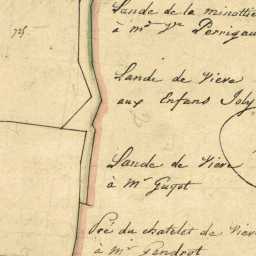 Lande de la minottie
à mr yve Perrigau
725
Lande de Viere
aux Enfans Joly
Lande de Viere
à Mr Guyot
Pré du chatelet de Viere
à Mr Gendrot